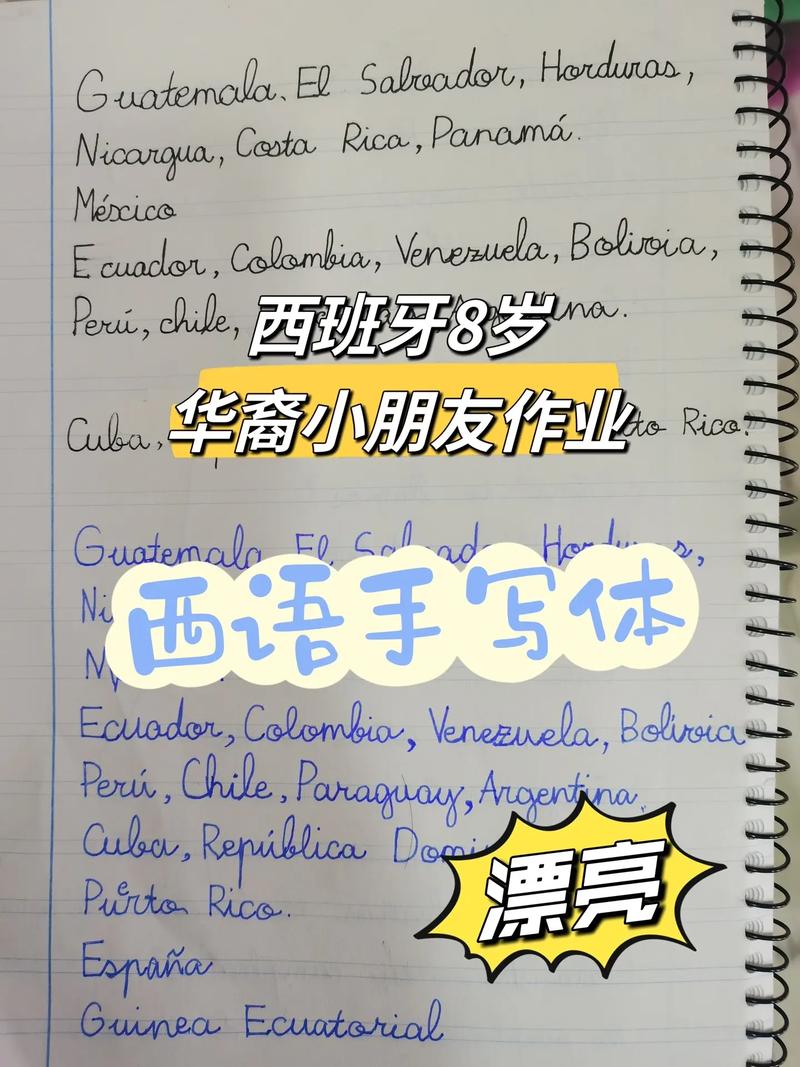 Guatemala. El Salvador, Horduras,
Nicargua, Costa Rica, Panamá.
México
Ecuador, Colombia, Venezuela, Bolivia,
Perú, chile,
西班牙8岁
Cuba,
华裔小朋友作业
Rico.
Guatemala El
西语手写体
Ecuador, Colombia, Venezuela, Bolívia
Perú, Chile, Paraguay, Argentina.
Cuba, República
漂亮
Puerto Rico.
España
Guinea Ecuatorial